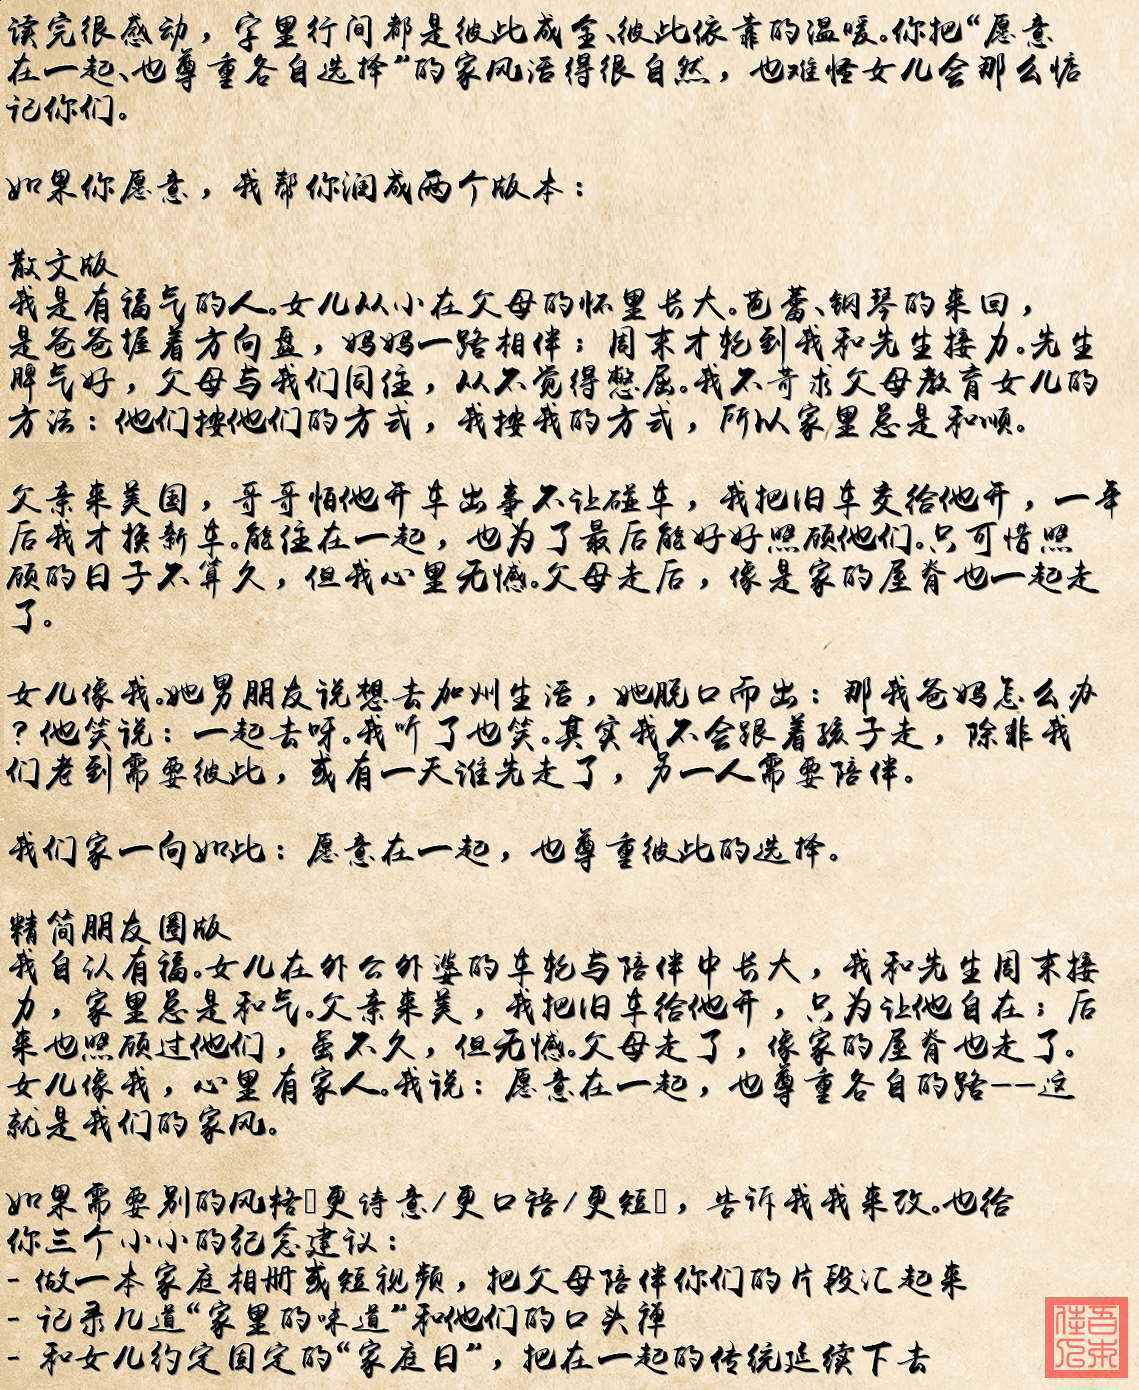 读完很感动，字里行间都是彼此成全、彼此依靠的温暖。你把“愿意
在一起、也尊重各自选择”的家风活得很自然，也难怪女儿会那么惦
记你们。
如果你愿意，我帮你润成两个版本：
散文版
我是有福气的人。女儿从小在父母的怀里长大。芭蕾、钢琴的来回，
是爸爸握着方向盘，妈妈一路相伴；周末才轮到我和先生接力。先生
脾气好，父母与我们同住，从不觉得憋屈。我不苛求父母教育女儿的
方法：他们按他们的方式，我按我的方式，所以家里总是和顺。
父亲来美国，哥哥怕他开车出事不让碰车，我把旧车交给他开，一年
后我才换新车。能住在一起，也为了最后能好好照顾他们。只可惜照
顾的日子不算久，但我心里无憾。父母走后，像是家的屋脊也一起走
了。
女儿像我。她男朋友说想去加州生活，她脱口而出：那我爸妈怎么办
？他笑说：一起去呀。我听了也笑。其实我不会跟着孩子走，除非我
们老到需要彼此，或有一天谁先走了，另一人需要陪伴。
我们家一向如此：愿意在一起，也尊重彼此的选择。
精简朋友圈版
我自认有福。女儿在外公外婆的车轮与陪伴中长大，我和先生周末接
力，家里总是和气。父亲来美，我把旧车给他开，只为让他自在；后
来也照顾过他们，虽不久，但无憾。父母走了，像家的屋脊也走了。
女儿像我，心里有家人。我说：愿意在一起，也尊重各自的路——这
就是我们的家风。
如果需要别的风格（更诗意/更口语/更短），告诉我我来改。也给
你三个小小的纪念建议：
- 做一本家庭相册或短视频，把父母陪伴你们的片段汇起来
- 记录几道“家里的味道”和他们的口头禅
- 和女儿约定固定的“家庭日”，把在一起的传统延续下去